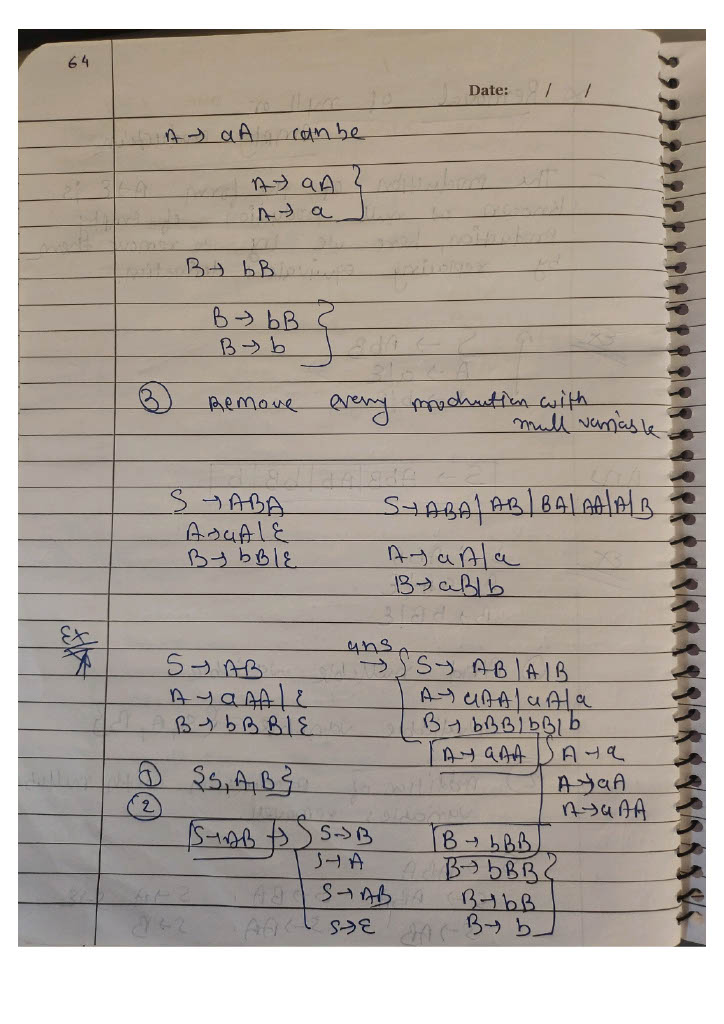 64
Date: / /
A → aA can be
A → aA
A → a
B → bB
B → bB
B → b
③ Remove every production with
null variable
S → ABA
A → aA | ε
B → bB | ε
S → ABA | AB | BA | AA | A | B
A → aA | a
B → aB | b
Ex
S → AB
A → aAA | ε
B → bBB | ε
ans →
S → AB | A | B
A → aAA | aA | a
B → bBB | bB | b
① {S, A, B}
②
S → AB →
S → B
S → A
S → AB
S → ε
A → aAA
A → a
A → aA
A → aAA
B → bBB
B → bBB
B → bB
B → b